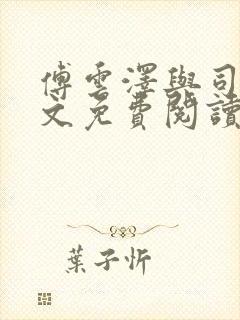 傅雲澤與司
文免費閱讀
葉子忻